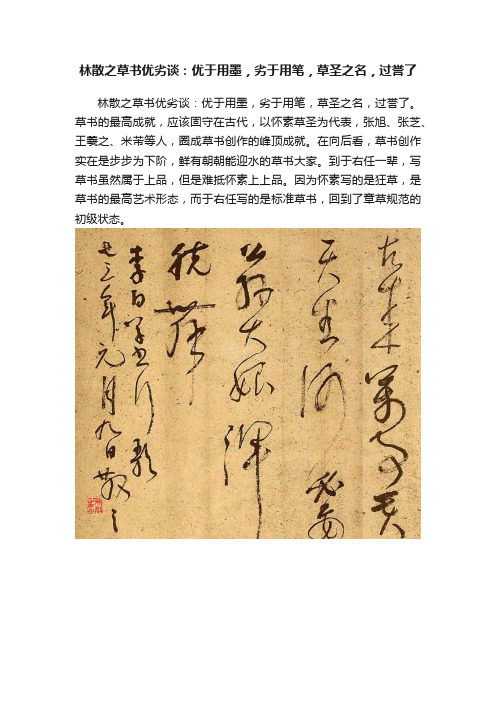 林散之草书优劣谈：优于用墨，劣于用笔，草圣之名，过誉了
林散之草书优劣谈：优于用墨，劣于用笔，草圣之名，过誉了。
草书的最高成就，应该固守在古代，以怀素草圣为代表，张旭、张芝、
王羲之、米芾等人，圈成草书创作的峰顶成就。在向后看，草书创作
实在是步步为下阶，鲜有朝朝能迎水的草书大家。到于右任一辈，写
草书虽然属于上品，但是难抵怀素上上品。因为怀素写的是狂草，是
草书的最高艺术形态，而于右任写的是标准草书，回到了章草规范的
初级状态。
古来萬事貴
天生何必要
公孫大娘渾
脱舞
李白草書行歌
七三年元月九日散之